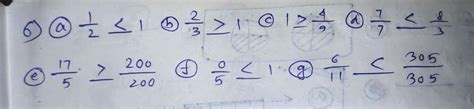 6) ⓐ 1/2 < 1 ⓑ 2/3 > 1 ⓒ 1 > 4/9 ⓓ 7/7 < 8/3
ⓔ 17/5 > 200/200 ⓕ 0/5 < 1 ⓖ 6/11 < 305/305